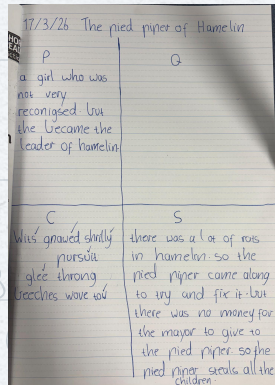 17/3/26 The pied piper of Hamelin
P
a girl who was
not very
reconigsed but
the became the
leader of hamelin
Q
C
Wits gnawed shrilly
pursuit
glee throng
beeches wove
S
there was a lot of rats
in hamelin. so the
pied piper came along
to try and fix it. but
there was no money for
the mayor to give to
the pied piper so the
pied piper steals all the
children.